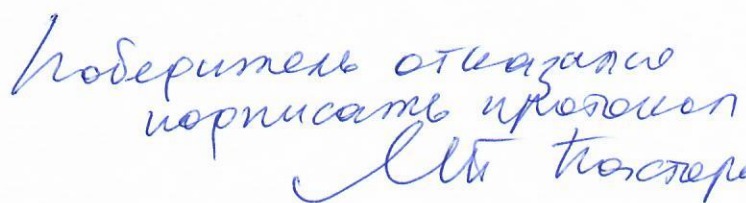 Победитель отказался
подписать протокол